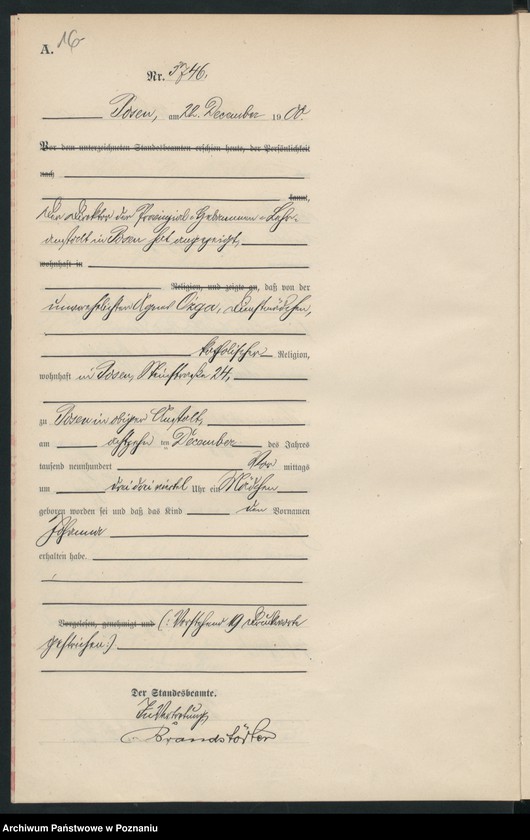 A. 16
Nr. 5746.
Posen, am 22. December 1900.
Vor dem unterzeichneten Standesbeamten erschien heute, der Persönlichkeit
nach
kannt,
Der Direktor der Provinzial-Hebammen-Lehr-
anstalt in Posen hat angezeigt,
wohnhaft in
Religion, und zeigte an, daß von der
unverehelichten Agnes Ozga, Dienstmädchen,
katholischer Religion,
wohnhaft in Posen, 24,
zu Posen in obiger Anstalt,
am achtzehn ten December des Jahres
tausend neunhundert Vor mittags
um drei drei viertel Uhr ein Mädchen
geboren worden sei und daß das Kind den Vornamen
Johanna
erhalten habe.
Vorgelesen, genehmigt und (: Vorstehend 19 Druckworte
gestrichen:)
Der Standesbeamte.
In Vertretung
Brandstädter
Archiwum Państwowe w Poznaniu